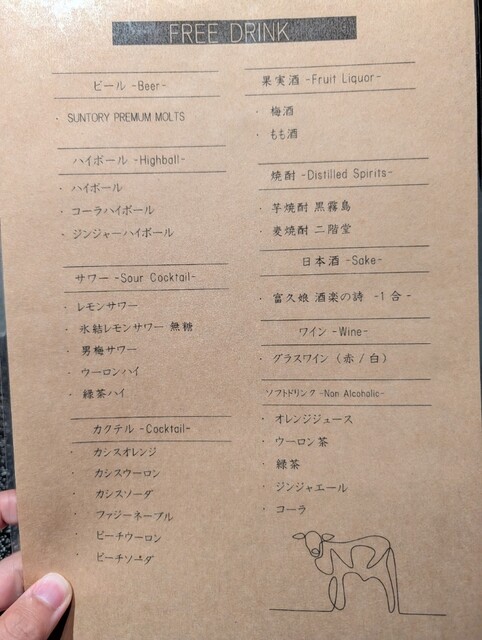 FREE DRINK
ビール -Beer-
・ SUNTORY PREMIUM MOLTS
ハイボール -Highball-
・ ハイボール
・ コーラハイボール
・ ジンジャーハイボール
サワー -Sour Cocktail-
・ レモンサワー
・ 氷結レモンサワー 無糖
・ 男梅サワー
・ ウーロンハイ
・ 緑茶ハイ
カクテル -Cocktail-
・ カシスオレンジ
・ カシスウーロン
・ カシスソーダ
・ ファジーネーブル
・ ピーチウーロン
・ ピーチソーダ
果実酒 -Fruit Liquor-
・ 梅酒
・ もも酒
焼酎 -Distilled Spirits-
・ 芋焼酎 黒霧島
・ 麦焼酎 二階堂
日本酒 -Sake-
・ 富久娘 酒楽の詩 -1合-
ワイン -Wine-
・ グラスワイン (赤/白)
ソフトドリンク -Non Alcoholic-
・ オレンジジュース
・ ウーロン茶
・ 緑茶
・ ジンジャエール
・ コーラ